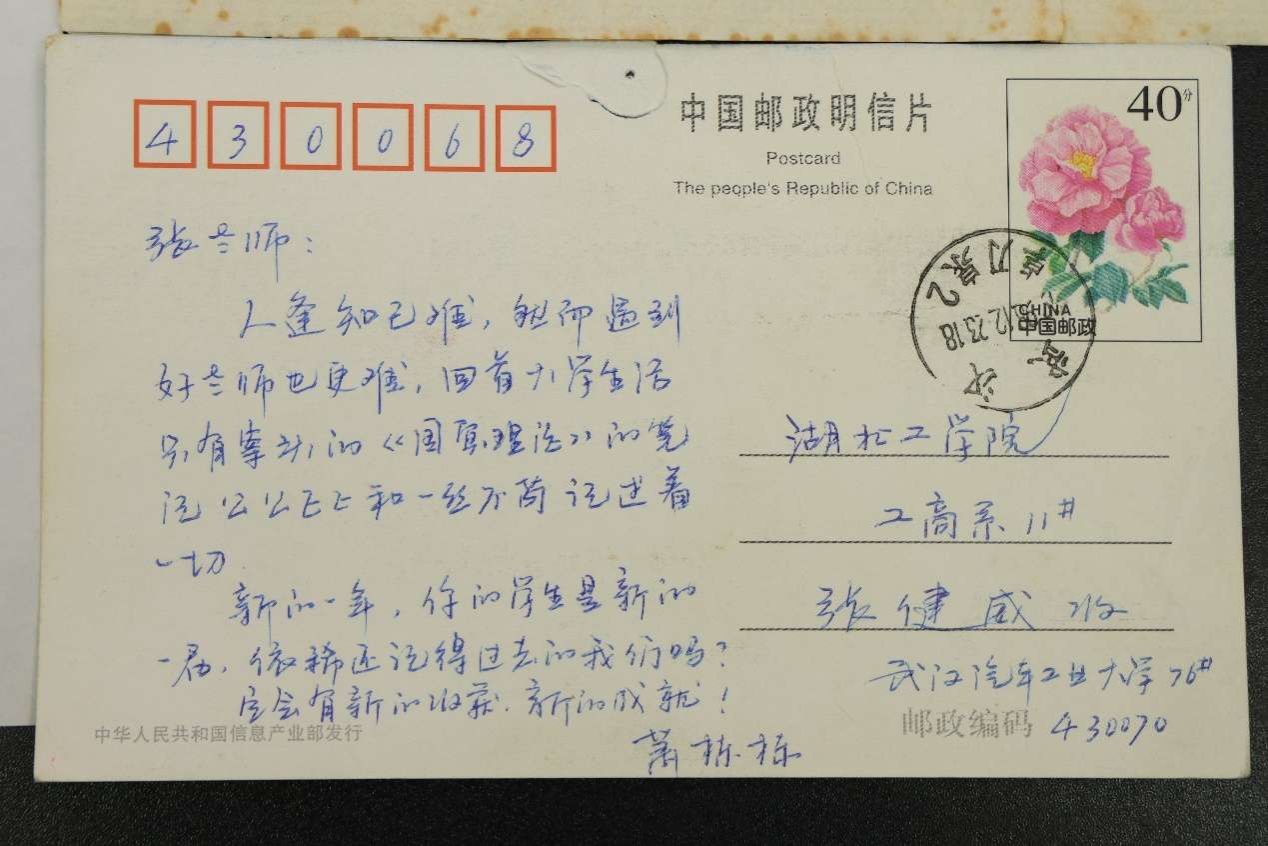 430068
中国邮政明信片
Postcard
The people's Republic of China
40分
CHINA
中国邮政
卓刀泉2
12.23.18
武汉
张老师：
人逢知己难，然而遇到
好老师也更难，回首大学生活
只有牵头的《国原理法》的笔
记 公公正正和一丝不苟记述着
一切
新的一年，你的学生是新的
一届，依稀还记得过去的我们吗？
定会有新的收获，新的成就！
萧栋栋
湖北工学院
工商系11#
张健威 收
武汉汽车工业大学76#
邮政编码 430070
中华人民共和国信息产业部发行